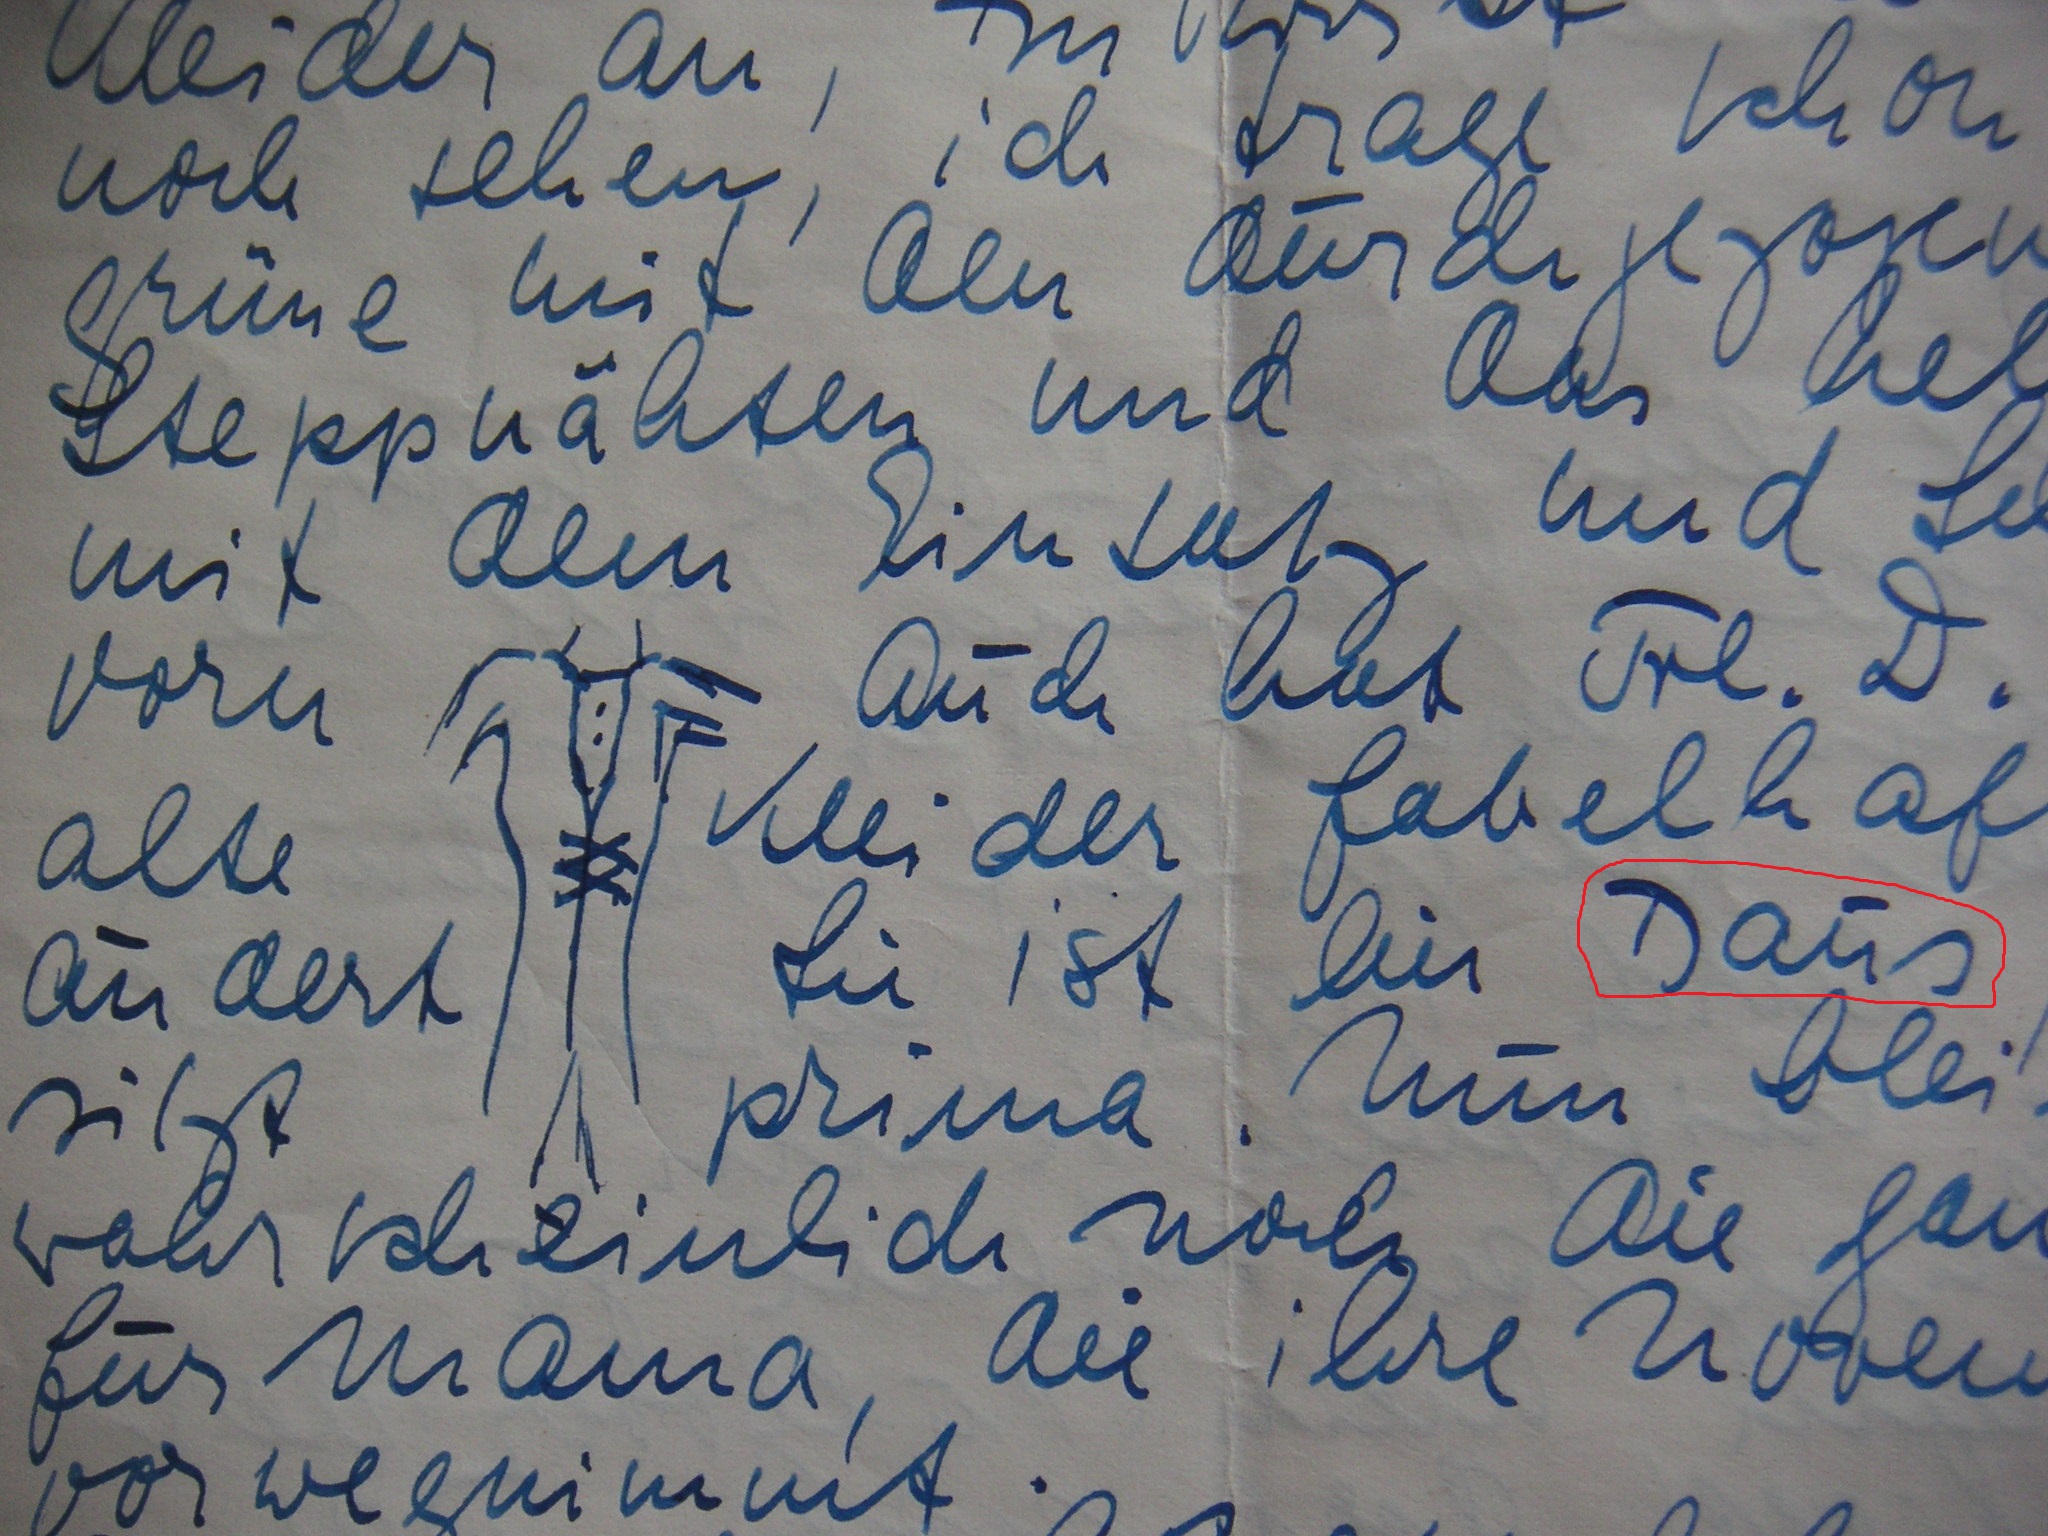 Kleider an, Du
noch sehen, ich trage schon
grüne mit den durchgezogen
Steppnähten und das hel
mit dem Einsatz und
vorn auch hat Frl. D.
alte Kleider fabelhaf
ändert Sie ist ein Daus
sitzt prima. Nun blei
wahrscheinlich noch die gan
für Mama, die ihre Noven
vorwegnimmt.